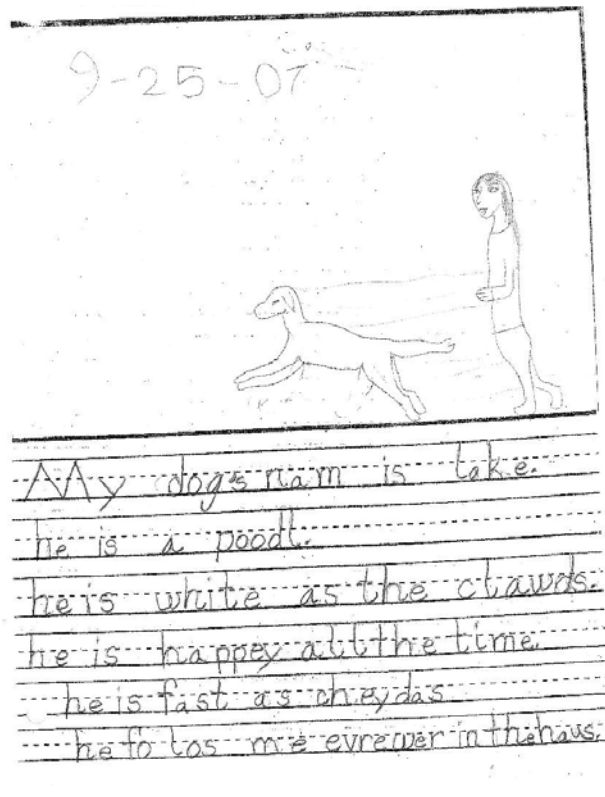 9-25-07
My dog's nam is lake.
he is a poodl.
he is white as the clawds.
he is happey all the time.
he is fast as cheydas
he fo los me evrewer in the haus.